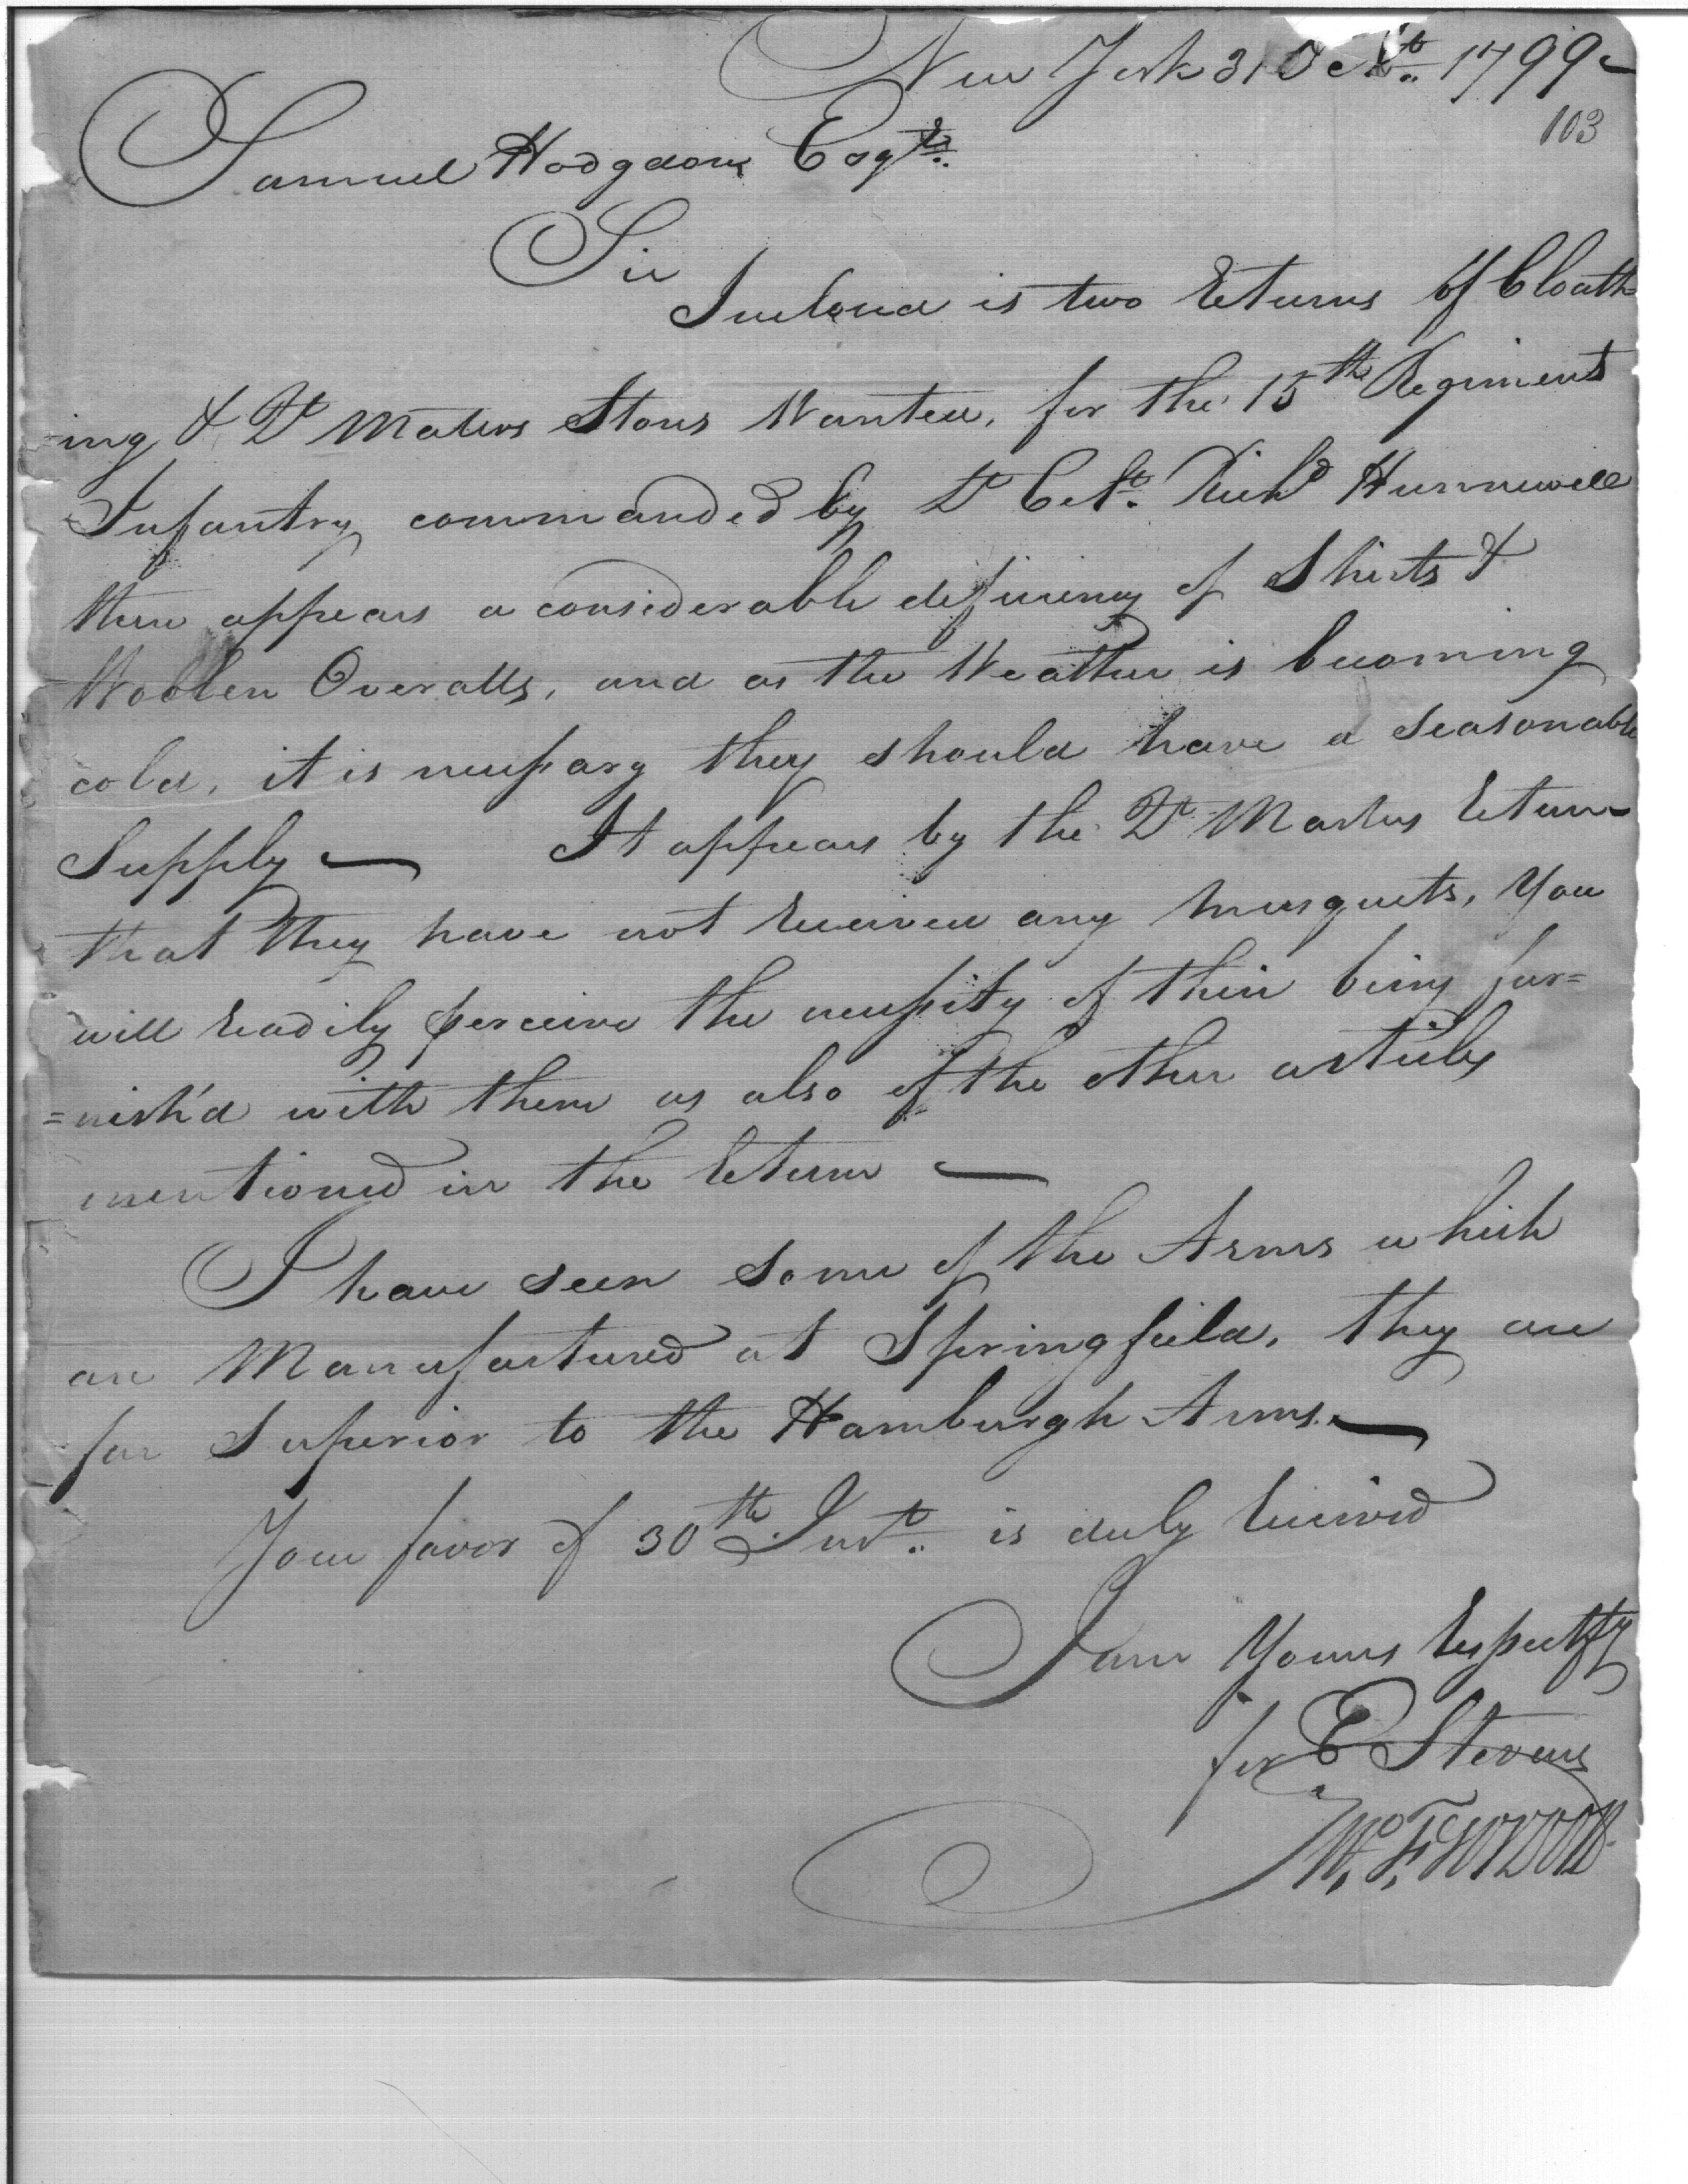 New York 31 Octr. 1799-
103
Samuel Hodgdon Esqr.
Sir
Inclosed is two Returns of Cloath
-ing & Qr Masters Stores Wanted, for the 15th Regiment
Infantry commanded by Lt Colo. Richd Hunnewell
there appears a considerable deficiency of Shirts &
Woollen Overalls, and as the Weather is becoming
cold, it is necessary they should have a seasonable
Supply — It appears by the Qr Masters Return
that they have not received any musquets, You
will readily perceive the necessity of their being fur=
=nish'd with them as also of the other articles
mentioned in the Return —
I have seen some of the Arms which
are Manufactured at Springfield, they are
far Superior to the Hamburgh Arms. —
Your favor of 30th Inst. is duly received
I am Yours Respectfy
for E Stevens